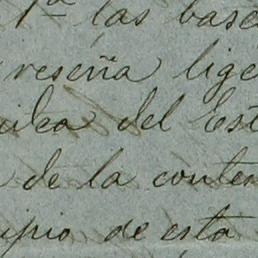 1ª las base
reseña lige
idea del Est
de la conten
ipio de esta